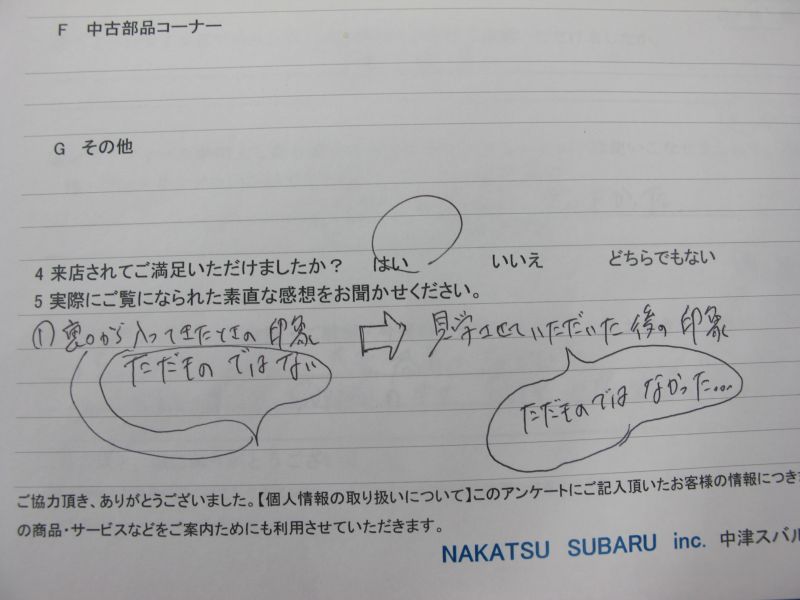 F 中古部品コーナー
G その他
4 来店されてご満足いただけましたか？ はい いいえ どちらでもない
5 実際にご覧になられた素直な感想をお聞かせください。
① 裏口から入ってきたときの印象 ⇨ 見学させていただいた後の印象
ただものではない
ただものではなかった…
ご協力頂き、ありがとうございました。【個人情報の取り扱いについて】このアンケートにご記入頂いたお客様の情報につきま
の商品・サービスなどをご案内ためにも利用させていただきます。
NAKATSU SUBARU inc. 中津スバル